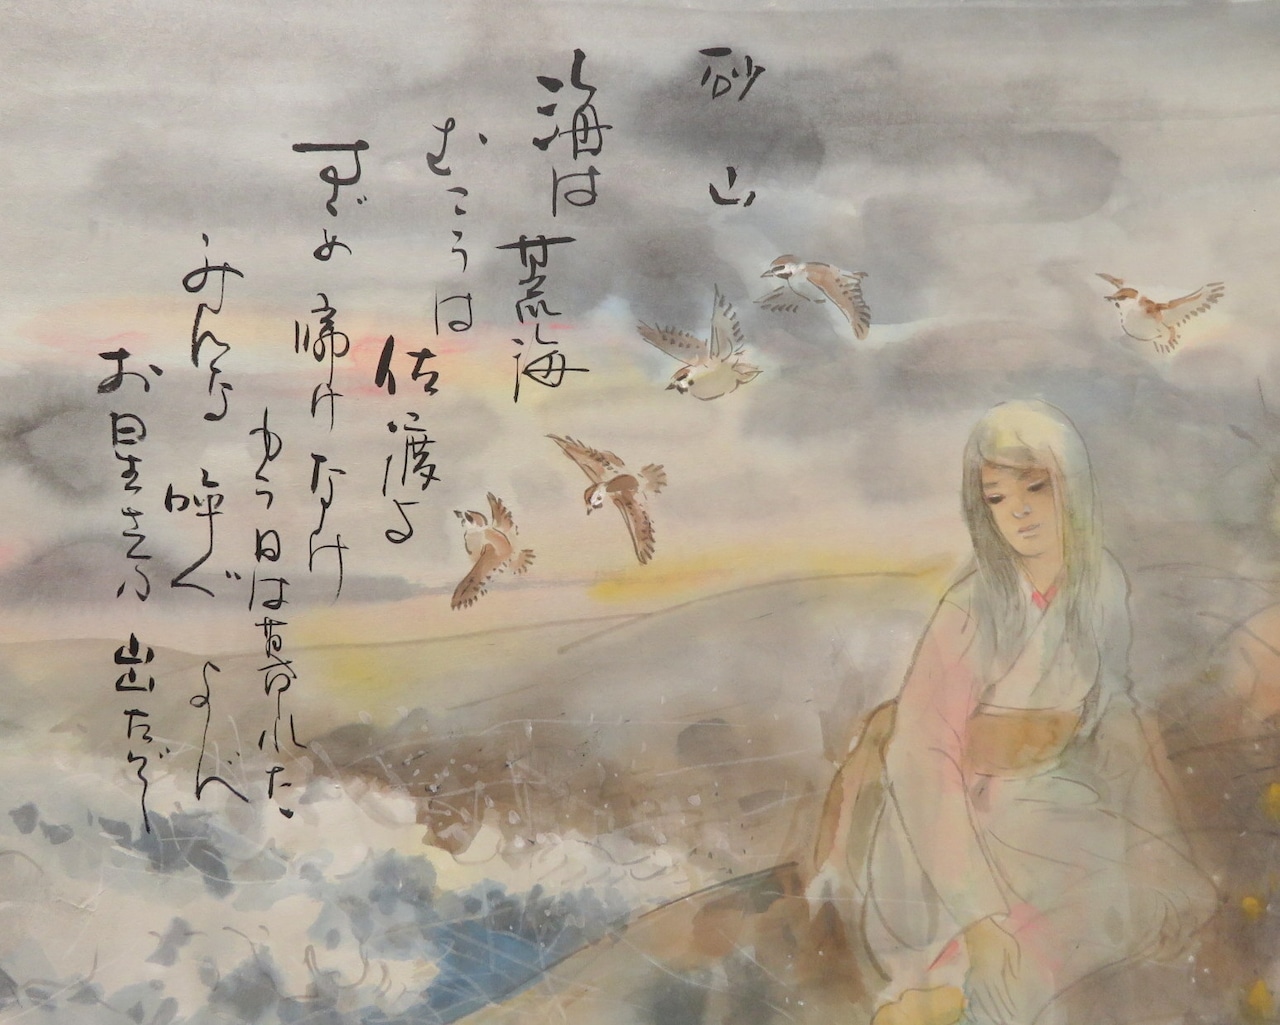 砂山
海は荒海
むこうは佐渡よ
すゞめ啼けなけ
もう日は暮れた
みんな呼べよべ
お星さま出たぞ